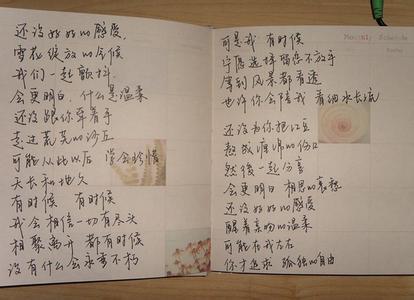 还没好好的感受
雪花绽放的气候
我们一起颤抖
会更明白,什么是温柔
还没跟你牵着手
走过荒芜的沙丘
可能从此以后 学会珍惜
天长和地久
有时候 有时候
我会相信一切有尽头
相聚离开 都有时候
没有什么会永垂不朽
Monthly Schedule
可是我 有时候
宁愿选择留恋不放手
等到风景都看透
也许你会陪我 看细水长流
还没为你把红豆
熬成缠绵的伤口
然後一起分享
会更明白 相思的哀愁
还没好好的感受
醒着亲吻的温柔
可能在我左右
你才追求 孤独的自由